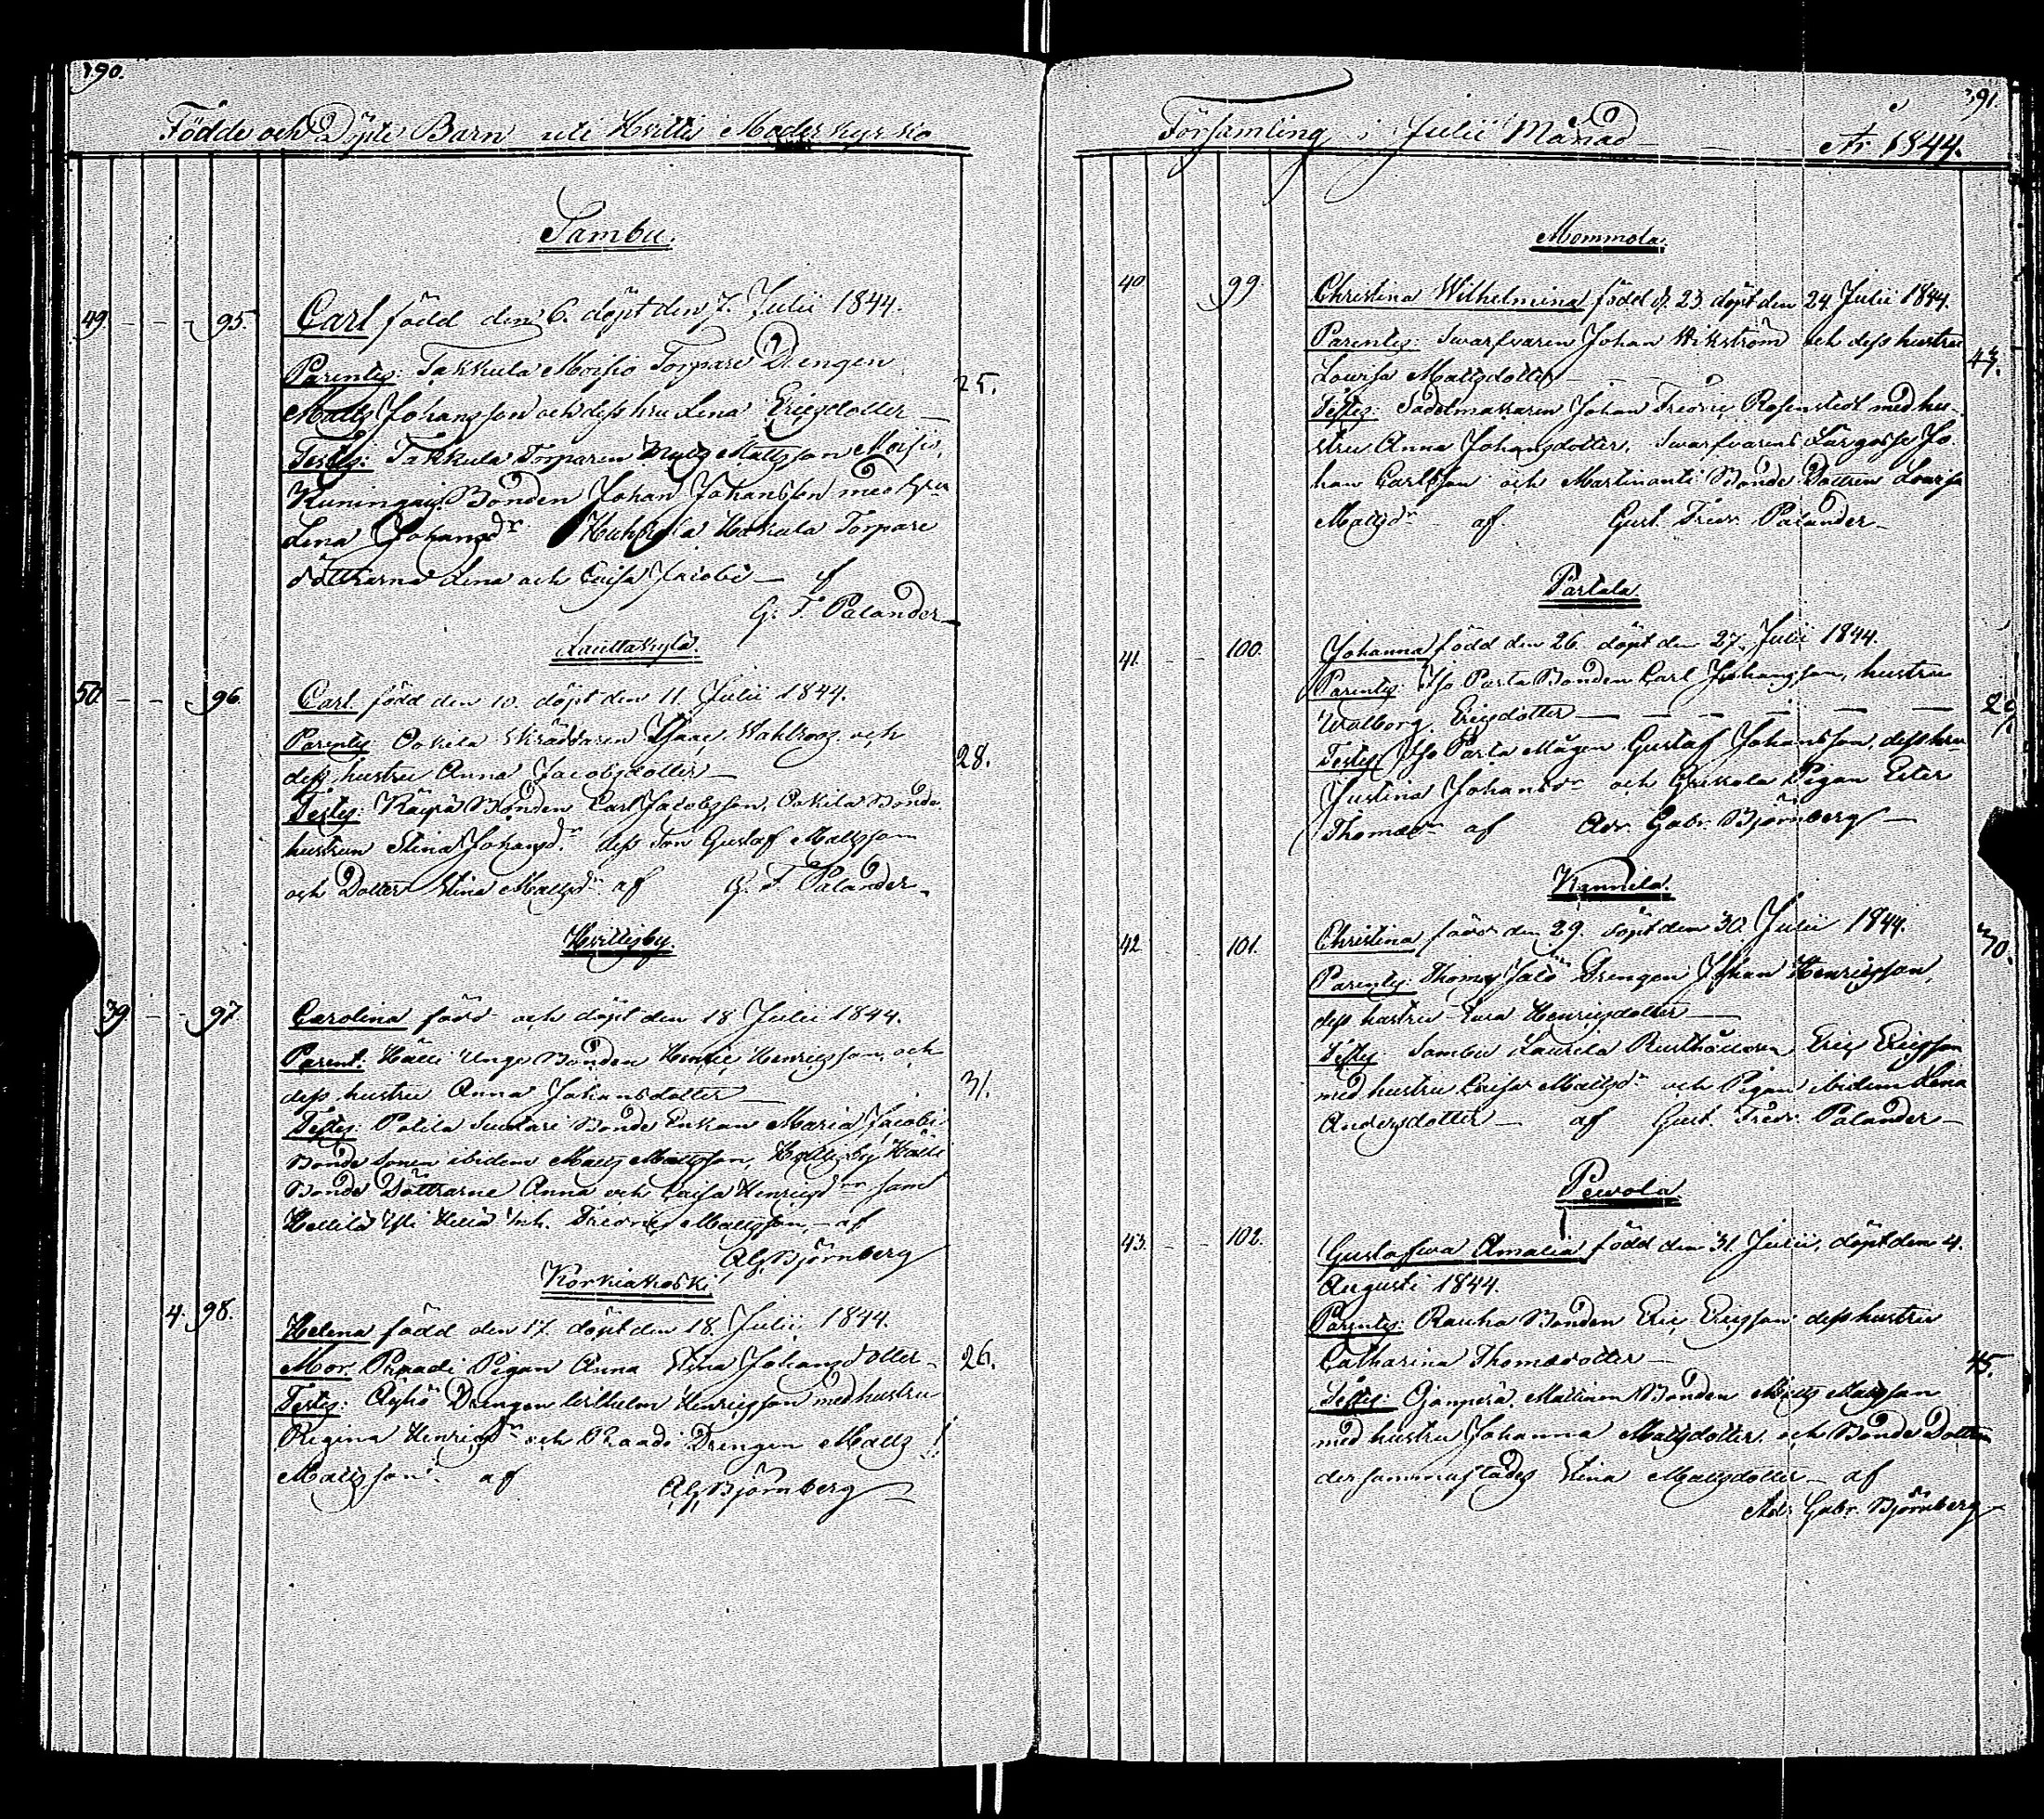 190.
Födde och Döpte Barn uti Hvittis Moderkyrko
Sambu.
49 - - - 95. Carl född den 6. döpt den 7. Julii 1844.
Parentes: Takkula Moisio Torpare Drengen
25.
Matts Johansson och dess hru Lena Ericsdotter
Testes: Takkula Torparen Matts Mattsson Moisio,
Kuningais Bonden Johan Johansson med hru
Lena Johansdr Hakula Torpare
döttrarna Lena och Caisa Jacobi — af
G. F. Palander
Lauttakylä.
50. - - 96. Carl född den 10. döpt den 11. Julii 1844.
Parentes Skräddaren Isaac Wahlroos och
28.
dess hustru Anna Jacobsdotter —
Testes: Käyrä Bonden Carl Jacobsson, Bonde
hustrun Stina Johansdr dess Son Gustaf Mattsson
och Dotter Stina Mattsdr af G. F. Palander
Hvittisby.
39 - - 97 Carolina född och döpt den 18 Julii 1844.
Parent: Hälli Unge Bonden Henric Henricsson och
dess hustru Anna Johansdotter —
31.
Testes: Suutari Bonde Enkan Maria Jacobi
Bonde Sonen ibidem Matts Mattsson, Hvittisby Hälli
Bonde Döttrarne Anna och Caisa Henricsdr samt
Fredric Mattsson, — af
AG Björnberg
Korkiakoski
4. 98. Helena född den 17. döpt den 18. Julii 1844.
Mor. Raadi Pigan Anna Stina Johansdotter
26.
Testes: Äyhö Drengen Wilhelm Henricsson med hustru
Regina Henricsdr och Raadi Drengen Matts
Mattsson. af AG Björnberg
391.
Församling i Julii Månad — År 1844.
Mommola.
40 99. Christina Wilhelmina född d. 23 döpt den 24 Julii 1844.
Parentes: Swarfvaren Johan Wikström och dess hustru
43.
Lovisa Mattsdotter
Testes: Sadelmakaren Johan Fredric Rosenstedt med hu-
stru Anna Johansdotter, Swarfvarens Lärgosse Jo-
han Carlsson och Martinanti Bonde Dottren Lovisa
Mattsdr af Gust. Fredr. Palander
Pärtala.
41. - - 100. Johanna född den 26. döpt den 27. Julii 1844.
Parentes: Iso Parta Bonden Carl Johansson, hustru
Walborg Ericsdotter
29
Testes Iso Parta Mågen Gustaf Johansson, dess hru
Justina Johansdr och Pigan Ester
Thomasdr af Adr. Gabr. Björnberg —
Kannila.
42 - 101. Christina född den 29. döpt den 30. Julii 1844.
30.
Parentes: Drengen Johan Henricsson,
dess hustru Eva Henricsdotter
Testes Sambu Laurila Rusthållaren Eric Ericsson
med hustru Caisa Mattsdr och Pigan ibidem Lena
Andersdotter — af Gust. Fredr. Palander —
Pewola
43. - - 102. Gustafwa Amalia född den 31. Julii, döpt den 4.
Augusti 1844.
Parentes: Rauha Bonden Eric Ericsson dess hustru
Catharina Thomasdotter —
45.
Testes: Mattinen Bonden Matts Mattsson
med hustru Johanna Mattsdotter och Bonde Dottren
dersammastädes Stina Mattsdotter — af
Adr. Gabr. Björnberg